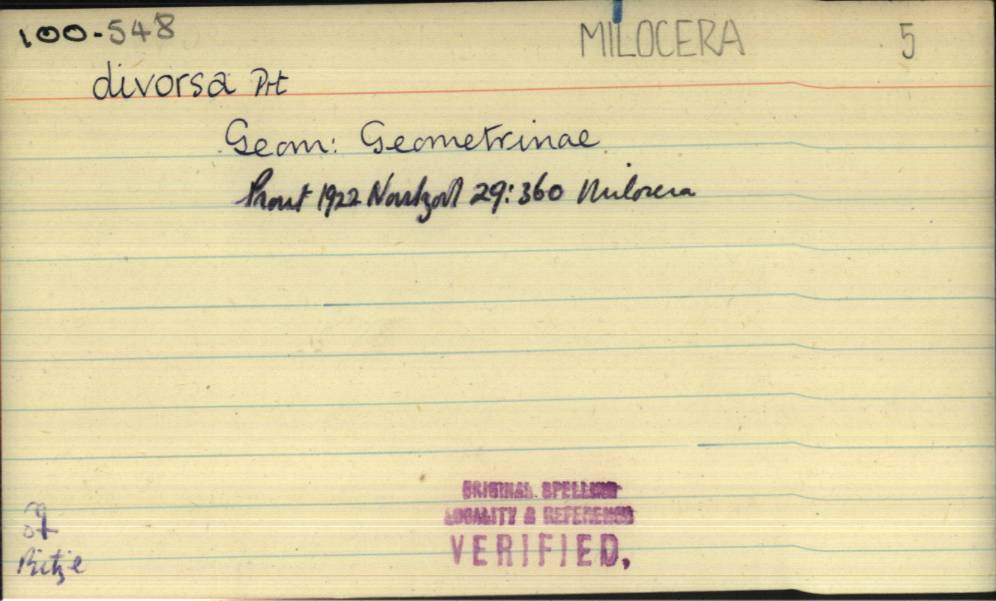 100-548 MILOCERA 5
divorsa Prt
Geom: Geometrinae
Prout 1922 Novitzool 29:360 Milocera
ORIGINAL SPELLING
LOCALITY & REFERENCE
VERIFIED.